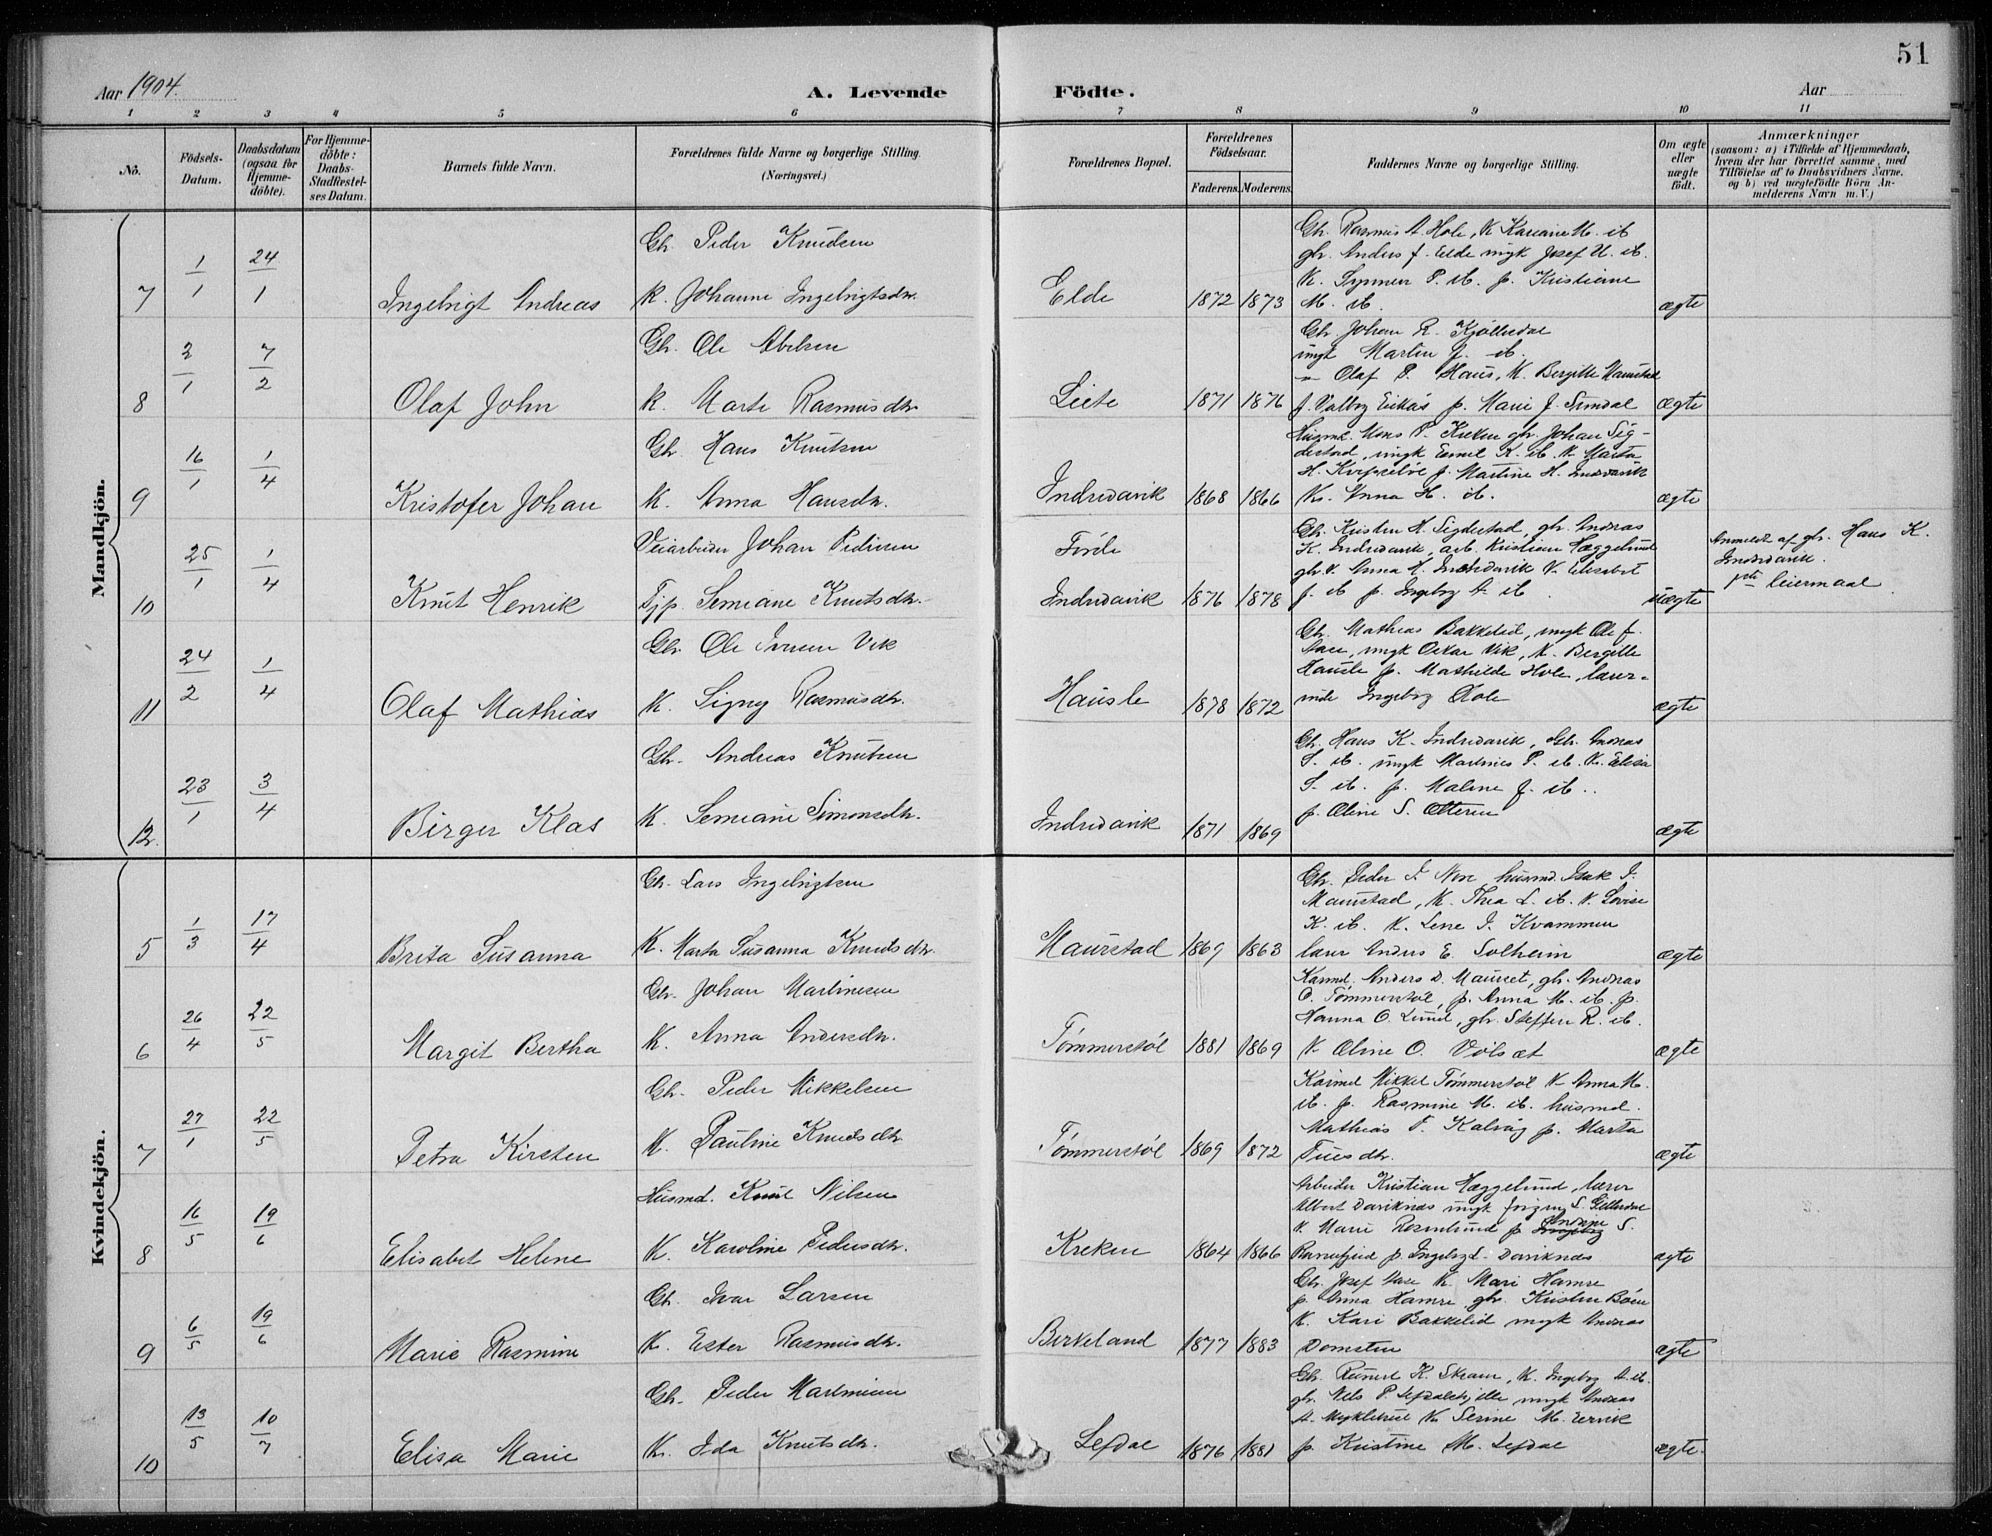 51
Aar 1904.
A. Levende Födte.
Aar
1 2 3 4 5 6 7 8 9 10 11
No.
Födsels-Datum.
Daabsdatum (ogsaa for Hjemme-döbte).
For Hjemme-döbte: Daabs-Stadfæstelses Datum.
Barnets fulde Navn.
Forældrenes fulde Navne og borgerlige Stilling. (Næringsvei.)
Forældrenes Bopæl.
Forældrenes Födselsaar.
Faderens. Moderens.
Faddernes Navne og borgerlige Stilling.
Om ægte eller uægte födt.
Anmærkninger (saasom: a) i Tilfælde af Hjemmedaab, hvem der har forrettet samme, med Tilföielse af to Daabsvidners Navne, og b) ved uægtefödte Börn Anmelderens Navn m. V.)
Mandkjön.
7 1/1 24/1 Ingebrigt Andreas
Gb. Peder Knudsen
K. Johanne Ingebrigtsdtr.
Elde 1872 1873
Gb. Rasmus A. Hole, K. Kariane M. ib
gb. Anders J. Elde ungk Josef U. ib.
K. Synneva P. ib. p. Kristiane
M. ib. ægte
8 2/1 7/2 Olaf John
Gb. Ole Abelsen
K. Marte Rasmusdtr.
Leete 1871 1876
Gb. Johan R. Kjöllesdal
ungk Martin J. ib.
" Olaf P. Haus, K. Bergitte Maurstad
p. Valborg Eikås p. Marie J. Sundal ægte
9 16/1 1/4 Kristofer Johan
Gb. Hans Knutsen
K. Anna Hansdtr.
Indrevavik 1868 1866
Husmd. Mons P. Kreken gb. Johan Sig-
destad, ungk Emil K. ib. K. Marta
p. Martine H. Indrevavik
K. Anna H. ib. ægte
10 25/1 1/4 Knut Henrik
Veiarbeider Johan Pedersen
Tjp. Semiane Knutsdtr.
Förde
Indrevavik 1876 1878
Gb. Kristen A. Sigdestad, gb. Andreas
K. Indrevavik, arb. Kristian Hæggelund
gbk. Anna H. Indrevavik K. Elisabet
J. ib p. Ingeborg A. ib. uægte
Anmeldt af gb. Hans K.
Indrevavik.
leiermaal
11 24/2 1/4 Olaf Mathias
Gb. Ole Iversen Vik
K. Signy Rasmusdtr.
Hausle 1878 1872
Gb. Mathias Bakkelid, ungk Ole J.
ungk Oskar Vik, K. Bergitte
Hausle p. Mathilde Hole, lærer-
inde Ingeborg Hole ægte
12. 23/1 3/4 Birger Klas
Gb. Andreas Knutsen
K. Semiane Simonsdtr.
Indrevavik 1871 1869
Gb. Hans K. Indrevavik, Gb. Andreas
S. ib. ungk Martines P. ib. K. Elisa
S. ib. p. Maline J. ib..
p. Oline S. Otteren ægte
Kvindekjön.
5 1/3 17/4 Brita Susanna
Gb. Lars Ingebrigtsen
K. Marta Susanna Knutsdtr.
Maurstad 1869 1863
Gb. Peder I. Nore husmd. Isak I.
Maurstad, K. Thea L. ib. K. Lovise
K. ib. K. Lene I. Kvammen
lærer Anders E. Solheim ægte
6 26/4 22/5 Margit Bertha
Gb. Johan Martinesen
K. Anna Andersdtr.
Tømmerstøl 1881 1869
Kaarmd. Anders D. Maurset, gb. Andreas
O. Tømmerstøl, p. Anna M. ib. p.
Hanna O. Lund, gb. Steffen R. ib.
K Oline O. Völsæt ægte
7 27/1 22/5 Petra Kirsten
Gb. Peder Mikkelsen
K. Pauline Knutsdtr.
Tømmerstøl 1869 1872
Kaarmd Mikkel Tømmerstøl K Anna M.
ib. p. Rasmine M. ib. husmd.
Mathias T. Kalvåg p. Marta
ægte
8 16/5 19/6 Elisabet Helene
Husmd. Knut Nilsen
K. Karoline Pedersdtr.
Kreken 1864 1866
Arbeider Kristian Hæggelund, lærer
Albert Daviknes ungk Jørgen S. Gillesdal
K. Marie Rosenlund p. S.
p. Ingeborg L. Daviknes ægte
9 6/5 19/6 Marie Rasmine
Gb. Ivar Larsen
K. Ester Rasmusdtr.
Birkeland 1877 1883
Gb. Josef K. Mari Hamre
p. Anna Hamre gb. Kristen Böen
K. Kari Bakkelid ungk Andreas
Domsten ægte
10 13/5 10/7 Elisa Marie
Gb. Peder Martinusen
K. Ida Knutsdtr.
Lefdal 1876 1881
Gb. K. Skaar, K. Ingeborg A. ib.
gb. Nils P. ungk Andreas
A. Myklebust K. Serine M. Ervik
p. Kristine M. Lefdal ægte.